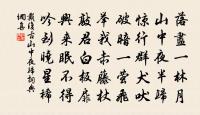 落盡一林月
山中夜半歸
驚行群犬吠
破暗一螢飛
舉我赤藤杖
敲君白板扉
興來眠不得
吟到曉星稀
戴復古山中夜歸詞典
網